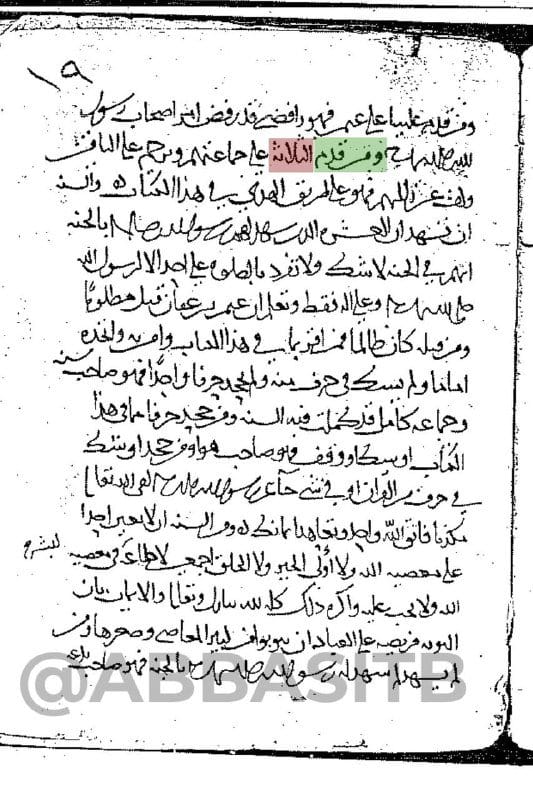 ١٩
ومن قدم عليا على عثمن فهو رافضي قد رفض امر اصحاب رسول
الله صلى الله عليه وسلم ومن قدم الثلاثة على جماعتهم وترحم على الباقين
وكف عن زللهم فهو على طريق الهدى في هذا الكتاب والسنة
ان تشهد ان العشرة الذين شهد لهم رسول الله صلى الله عليه وسلم بالجنة
انهم في الجنة لا شك ولا تفرد بالصلوة على احد الا لرسول الله
صلى الله عليه وسلم وعلى اله فقط وتعلم ان عثمن بن عفان قتل مظلوما
ومن قتله كان ظالما فمن اقر بما في هذا الكتاب وامن به واتخذه
اماما ولم يشك في حرف منه ولم يجحد حرفا واحدا فهو صاحب سنة
وجماعة كامل قد كملت فيه السنة ومن جحد حرفا مما في هذا
الكتاب او شك او وقف فهو صاحب هوا ومن جحد او شك
في حرف من القران او في شي جاء عن رسول الله صلى الله عليه وسلم لقي الله تعالى
مكذبا فاتق الله واحذر وتعاهد ايمانك ومن السنة ان لا تعين احدا
على معصية الله ولا اولي الخير ولا الخلق اجمعين لا طاعة في معصية
الله ولا تحب عليه واكره ذلك كله لله تبارك وتعالى والايمان بان
التوبة فريضة على العباد ان يتوبوا من كبير المعاصي وصغيرها ومن
لم يشهد لمن شهد له رسول الله صلى الله عليه وسلم بالجنة فهو صاحب بدعة
@ABBASITB